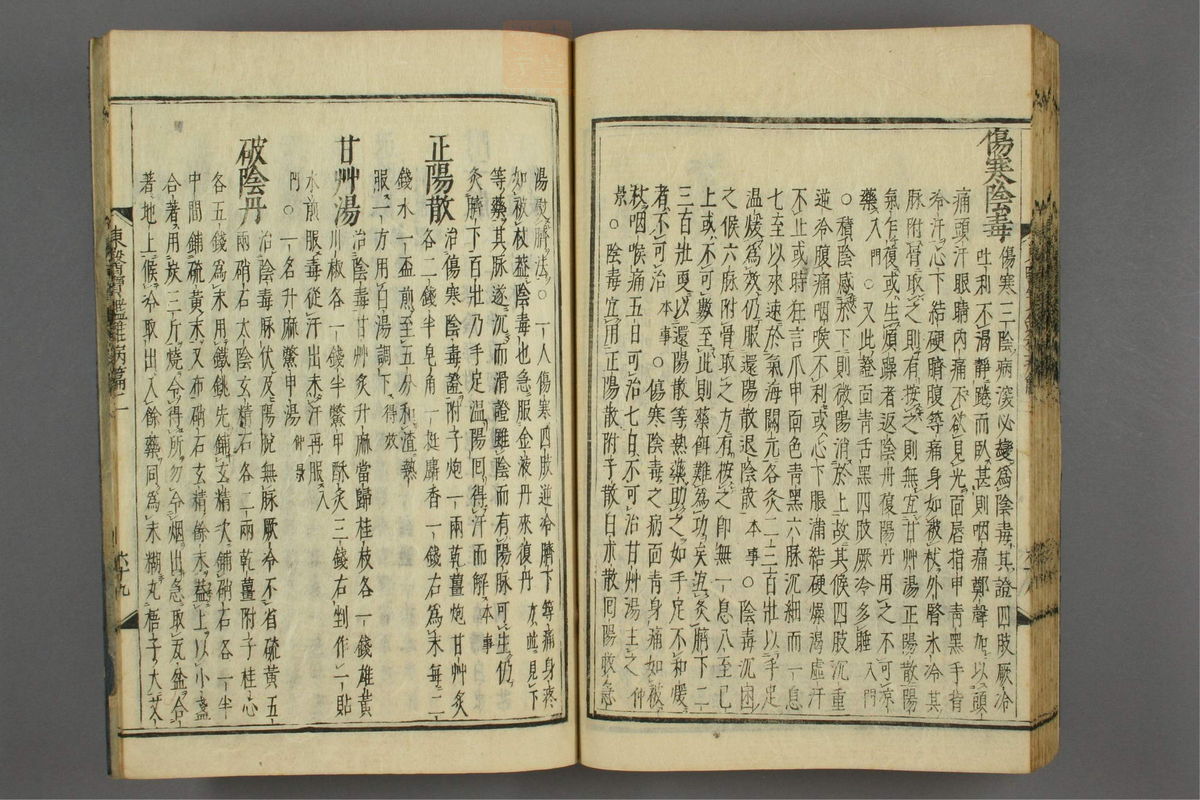 傷寒陰毒
傷寒三陰病深必變爲陰毒其證四肢厥冷
吐利不渴靜踡而臥甚則咽痛鄭聲加以頭
痛頭汗眼睛內痛不欲見光面唇指甲靑黑手背
冷汗心下結硬臍腹築痛身如被杖外腎氷冷其
脉附骨取之則有按之則無宜甘艸湯正陽散陽
氣乍復或生煩躁者返陰丹復陽丹用之不可凉
藥入門○又此證面靑舌黑四肢厥冷多睡入門
○積陰感於下則微陽消於上故其候四肢沉重
逆冷腹痛咽喉不利或心下脹滿結硬燥渴虛汗
不止或時狂言爪甲面色靑黑六脉沉細而一息
七至以來速於氣海關元各灸二三百壯以手足
溫煖爲效仍服還陽散退陰散本事○陰毒沉困
之候六脉附骨取之方有按之卽無一息八至已
上或不可數至此則藥餌難爲功矣宜灸臍下二
三百壯更以還陽散等熱藥助之如手足不和煖
者不可治本事○傷寒陰毒之病面靑身痛如被
杖咽喉痛五日可治七日不可治甘艸湯主之仲
景○陰毒宜用正陽散附子散白朮散回陽救急
湯熨臍法○一人傷寒四肢逆冷臍下築痛身疼
如被杖盖陰毒也急服金液丹來復丹亦並見下
等藥其脉遂沉而滑證雖陰而有陽脉可生仍
灸臍下百壯乃手足溫陽回得汗而解本事
正陽散
治傷寒陰毒證附子炮一兩乾薑炮甘艸炙
各二錢半皂角一挺麝香一錢右爲末每二
錢水一盃煎至五分和渣熱
服一方用白湯調下得效
甘艸湯
治陰毒甘艸炙升麻當歸桂枝各一錢雄黃
川椒各一錢半鱉甲酥炙三錢右剉作一貼
水煎服毒從汗出未汗再服入
門○一名升麻鱉甲湯仲景
破陰丹
治陰毒脉伏及陽脫無脉厥冷不省硫黃五
兩硝石太陰玄精石各二兩乾薑附子桂心
各五錢爲末用鐵銚先鋪玄精次鋪硝石各一半
中間鋪硫黃末又布硝石玄精餘末盖上以小盞
合着用炭三斤燒令得所勿令烟出急取瓦盆合
着地上候冷取出入餘藥同爲末糊丸梧子大艾
東醫寶鑑雜病篇二